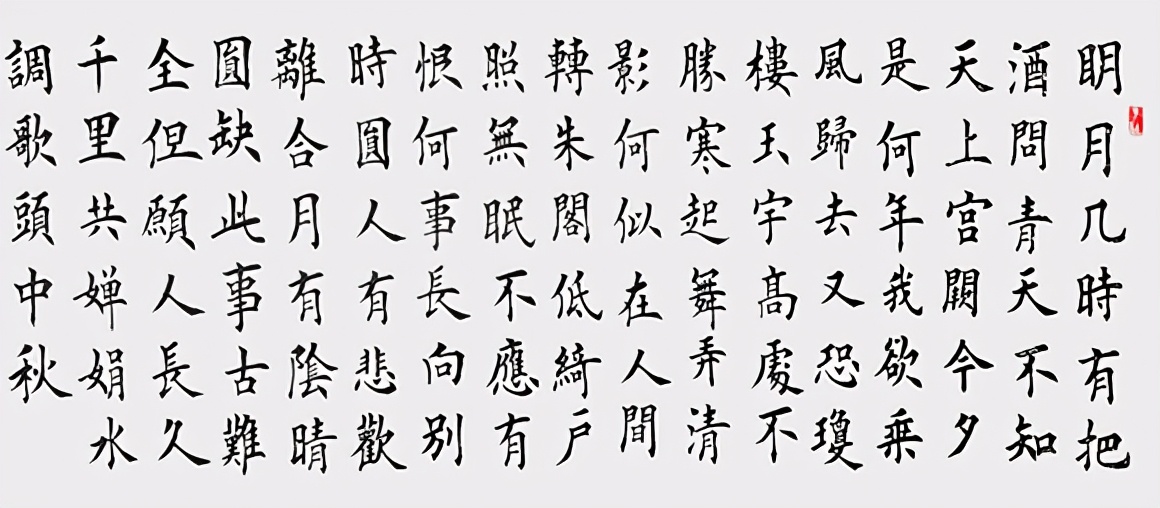 明月几時有把
酒問青天不知
天上宫闕今夕
是何年我欲乘
風歸去又恐瓊
樓玉宇高處不
勝寒起舞弄清
影何似在人間
轉朱閣低綺户
照無眠不應有
恨何事長向别
時圓人有悲歡
離合月有陰晴
圓缺此事古難
全但願人長久
千里共嬋娟水
調歌頭中秋